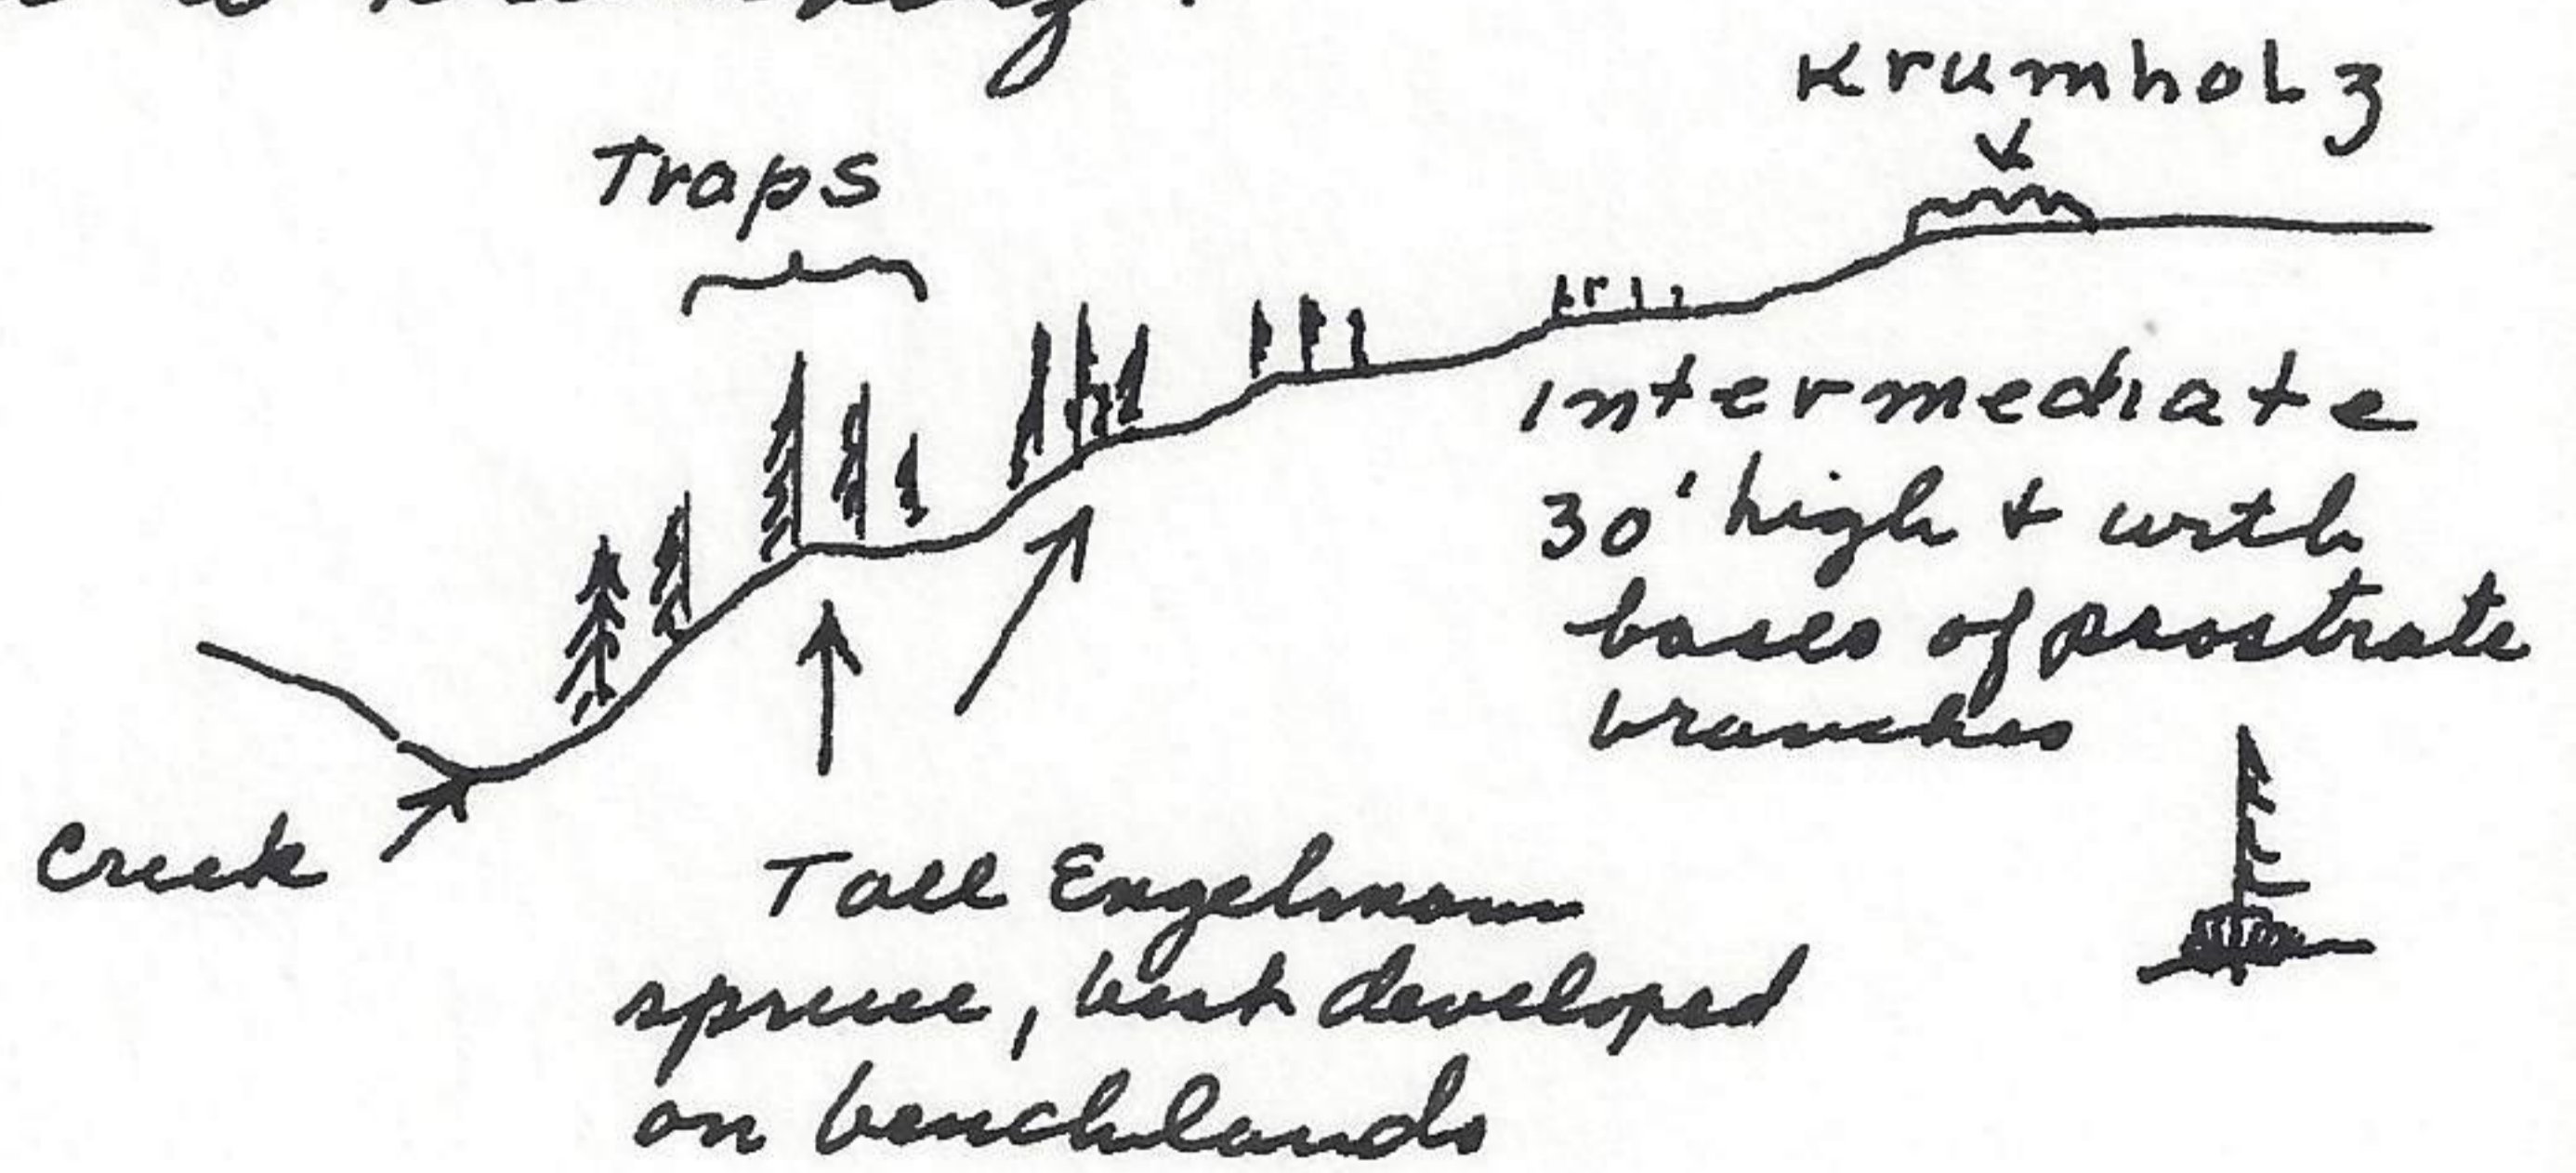 Krumholz
Traps
Intermediate
30' high & with
bases of prostrate
branches
Creek
Tall Engelmann
spruce, best developed
on benchlands